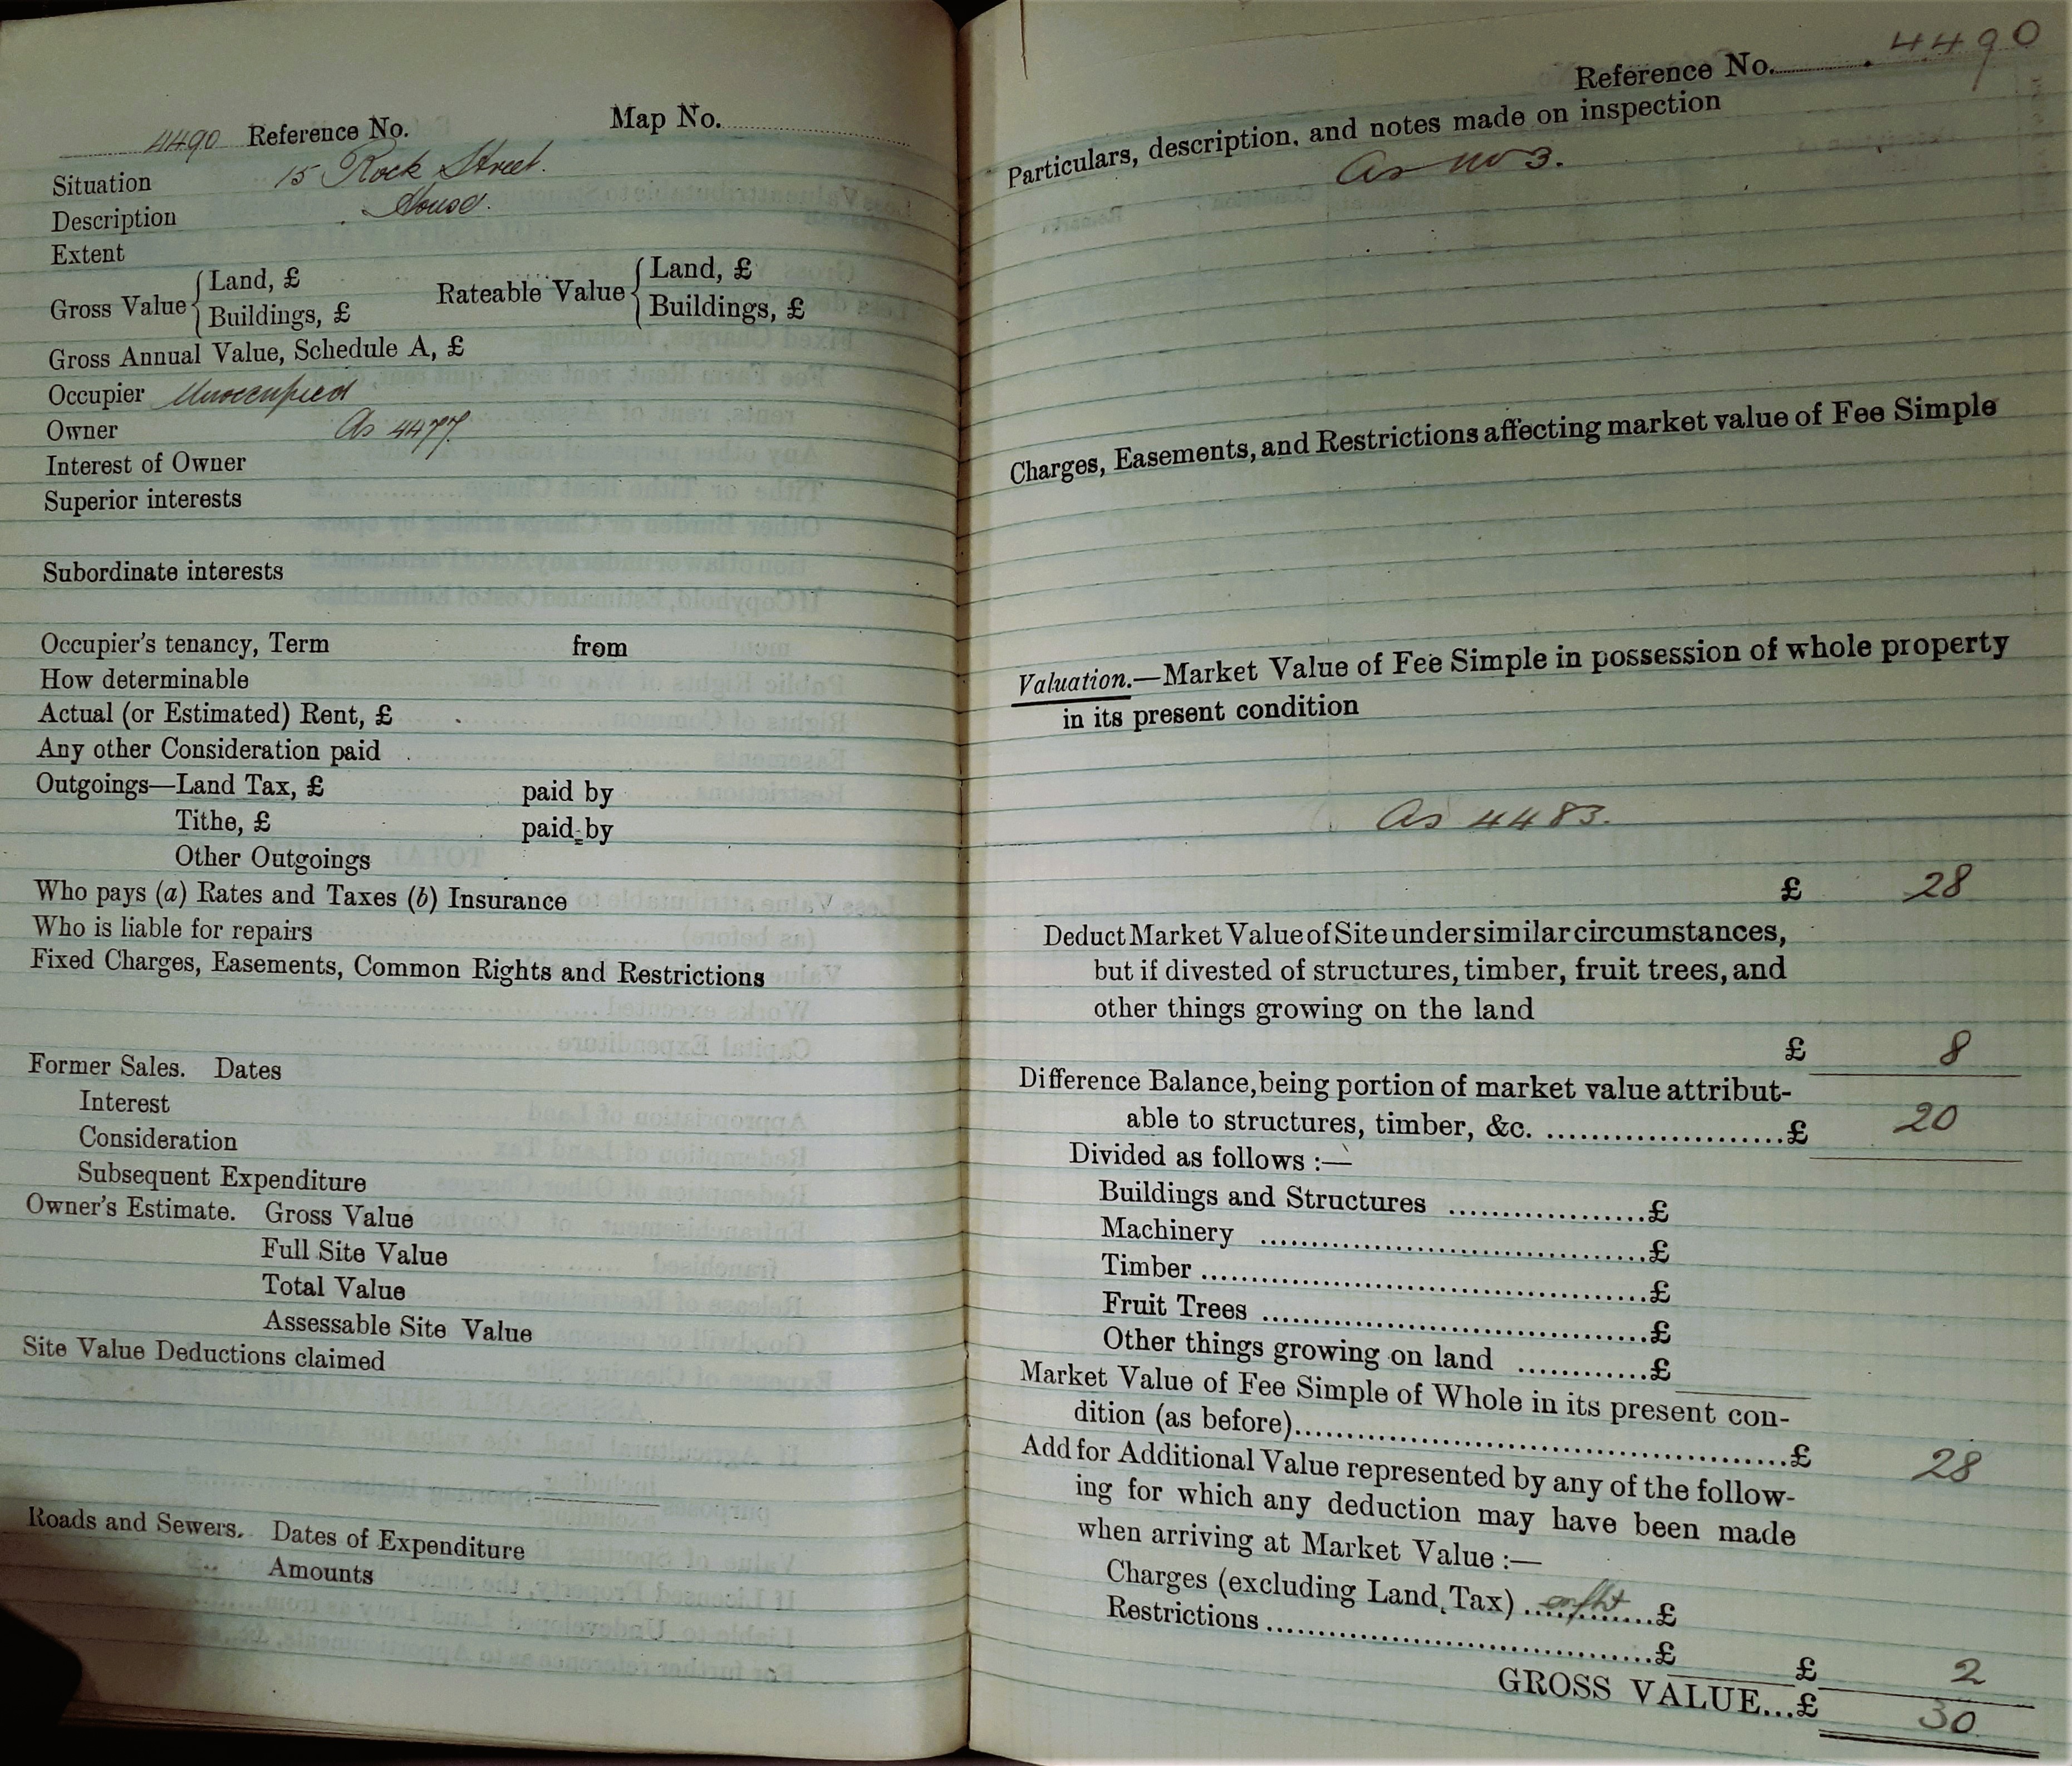 4490 Reference No. Map No.
Situation 15 Rock Street.
Description House.
Extent
Gross Value { Land, £ Rateable Value { Land, £
Buildings, £ Buildings, £
Gross Annual Value, Schedule A, £
Occupier Unoccupied
Owner As 4477
Interest of Owner
Superior interests
Subordinate interests
Occupier's tenancy, Term from
How determinable
Actual (or Estimated) Rent, £
Any other Consideration paid
Outgoings—Land Tax, £ paid by
Tithe, £ paid by
Other Outgoings
Who pays (a) Rates and Taxes (b) Insurance
Who is liable for repairs
Fixed Charges, Easements, Common Rights and Restrictions
Former Sales. Dates
Interest
Consideration
Subsequent Expenditure
Owner's Estimate. Gross Value
Full Site Value
Total Value
Assessable Site Value
Site Value Deductions claimed
Roads and Sewers. Dates of Expenditure
Amounts
Reference No. 4490
Particulars, description, and notes made on inspection
As no 3.
Charges, Easements, and Restrictions affecting market value of Fee Simple
Valuation.—Market Value of Fee Simple in possession of whole property
in its present condition
As 4483.
£ 28
Deduct Market Value of Site under similar circumstances,
but if divested of structures, timber, fruit trees, and
other things growing on the land
£ 8
Difference Balance, being portion of market value attribut-
able to structures, timber, &c. ....................£ 20
Divided as follows :—
Buildings and Structures ..................£
Machinery ..................£
Timber ..................£
Fruit Trees ..................£
Other things growing on land ............£
Market Value of Fee Simple of Whole in its present con-
dition (as before)..................£ 28
Add for Additional Value represented by any of the follow-
ing for which any deduction may have been made
when arriving at Market Value :—
Charges (excluding Land Tax) ............£
Restrictions ..................£
£ 2
GROSS VALUE...£ 30